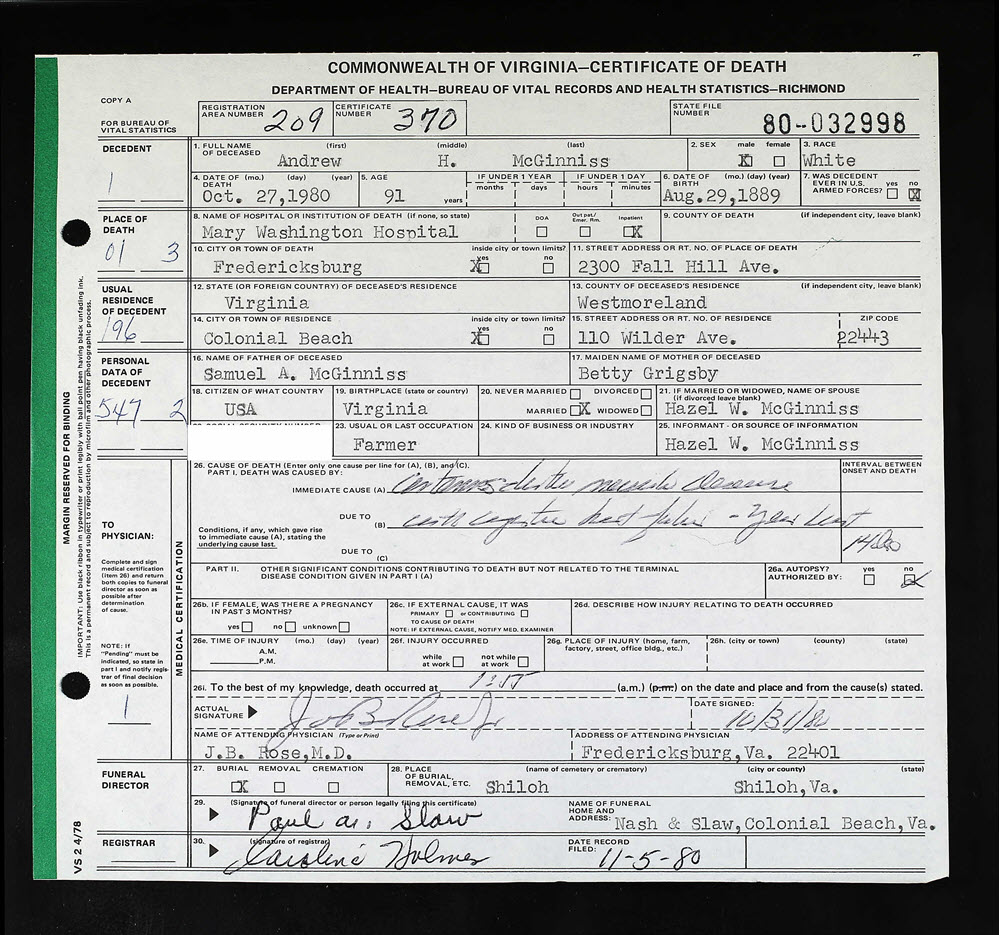 COMMONWEALTH OF VIRGINIA—CERTIFICATE OF DEATH
DEPARTMENT OF HEALTH—BUREAU OF VITAL RECORDS AND HEALTH STATISTICS—RICHMOND
COPY A
FOR BUREAU OF VITAL STATISTICS
REGISTRATION AREA NUMBER 209
CERTIFICATE NUMBER 370
STATE FILE NUMBER 80-032998
DECEDENT
1
1. FULL NAME OF DECEASED (first) (middle) (last)
Andrew H. McGinniss
2. SEX male female
X
3. RACE
White
4. DATE OF DEATH (mo.) (day) (year)
Oct. 27,1980
5. AGE
91 years
IF UNDER 1 YEAR
months days
IF UNDER 1 DAY
hours minutes
6. DATE OF BIRTH (mo.) (day) (year)
Aug.29,1889
7. WAS DECEDENT EVER IN U.S. ARMED FORCES? yes no
X
PLACE OF DEATH
01 3
8. NAME OF HOSPITAL OR INSTITUTION OF DEATH (if none, so state)
Mary Washington Hospital
DOA Out pat./ Emer. Rm. Inpatient
X
9. COUNTY OF DEATH (if independent city, leave blank)
10. CITY OR TOWN OF DEATH inside city or town limits?
Fredericksburg X yes no
11. STREET ADDRESS OR RT. NO. OF PLACE OF DEATH
2300 Fall Hill Ave.
USUAL RESIDENCE OF DECEDENT
196
12. STATE (OR FOREIGN COUNTRY) OF DECEASED'S RESIDENCE
Virginia
13. COUNTY OF DECEASED'S RESIDENCE (if independent city, leave blank)
Westmoreland
14. CITY OR TOWN OF RESIDENCE inside city or town limits?
Colonial Beach X yes no
15. STREET ADDRESS OR RT. NO. OF RESIDENCE ZIP CODE
110 Wilder Ave. 22443
PERSONAL DATA OF DECEDENT
547 2
16. NAME OF FATHER OF DECEASED
Samuel A. McGinniss
17. MAIDEN NAME OF MOTHER OF DECEASED
Betty Grigsby
18. CITIZEN OF WHAT COUNTRY
USA
19. BIRTHPLACE (state or country)
Virginia
20. NEVER MARRIED DIVORCED
MARRIED X WIDOWED
21. IF MARRIED OR WIDOWED, NAME OF SPOUSE
(if divorced leave blank)
Hazel W. McGinniss
23. USUAL OR LAST OCCUPATION
Farmer
24. KIND OF BUSINESS OR INDUSTRY
25. INFORMANT - OR SOURCE OF INFORMATION
Hazel W. McGinniss
MARGIN RESERVED FOR BINDING
IMPORTANT: Use black ribbon in typewriter or print legibly with ball point pen having black unfading ink.
This is a permanent record and subject to reproduction by microfilm and other photographic process.
TO PHYSICIAN:
Complete and sign medical certification (item 26) and return both copies to funeral director as soon as possible after determination of cause.
NOTE: If "Pending" must be indicated, so state in part I and notify registrar of final decision as soon as possible.
1
MEDICAL CERTIFICATION
26. CAUSE OF DEATH (Enter only one cause per line for (A), (B), and (C).
PART I. DEATH WAS CAUSED BY:
INTERVAL BETWEEN ONSET AND DEATH
IMMEDIATE CAUSE (A)
DUE TO
(B)
Conditions, if any, which gave rise to immediate cause (A), stating the underlying cause last.
DUE TO
(C)
PART II. OTHER SIGNIFICANT CONDITIONS CONTRIBUTING TO DEATH BUT NOT RELATED TO THE TERMINAL DISEASE CONDITION GIVEN IN PART I (A)
26a. AUTOPSY? AUTHORIZED BY: yes no
26b. IF FEMALE, WAS THERE A PREGNANCY IN PAST 3 MONTHS?
yes no unknown
26c. IF EXTERNAL CAUSE, IT WAS
PRIMARY or CONTRIBUTING
TO CAUSE OF DEATH
NOTE: IF EXTERNAL CAUSE, NOTIFY MED. EXAMINER
26d. DESCRIBE HOW INJURY RELATING TO DEATH OCCURRED
26e. TIME OF INJURY (mo.) (day) (year)
A.M.
P.M.
26f. INJURY OCCURRED
while at work not while at work
26g. PLACE OF INJURY (home, farm, factory, street, office bldg., etc.)
26h. (city or town) (county) (state)
26i. To the best of my knowledge, death occurred at (a.m.) (p.m.) on the date and place and from the cause(s) stated.
ACTUAL SIGNATURE
DATE SIGNED:
10/31/80
NAME OF ATTENDING PHYSICIAN (Type or Print)
J.B. Rose,M.D.
ADDRESS OF ATTENDING PHYSICIAN
Fredericksburg,Va. 22401
FUNERAL DIRECTOR
27. BURIAL REMOVAL CREMATION
X
28. PLACE OF BURIAL, REMOVAL, ETC. (name of cemetery or crematory) (city or county) (state)
Shiloh Shiloh,Va.
29. (Signature of funeral director or person legally filing this certificate)
Paul M. Slaw
NAME OF FUNERAL HOME AND ADDRESS: Nash & Slaw,Colonial Beach,Va.
REGISTRAR
30. (signature of registrar)
Caroline Holmes
DATE RECORD FILED: 11-5-80
VS 2 4/78